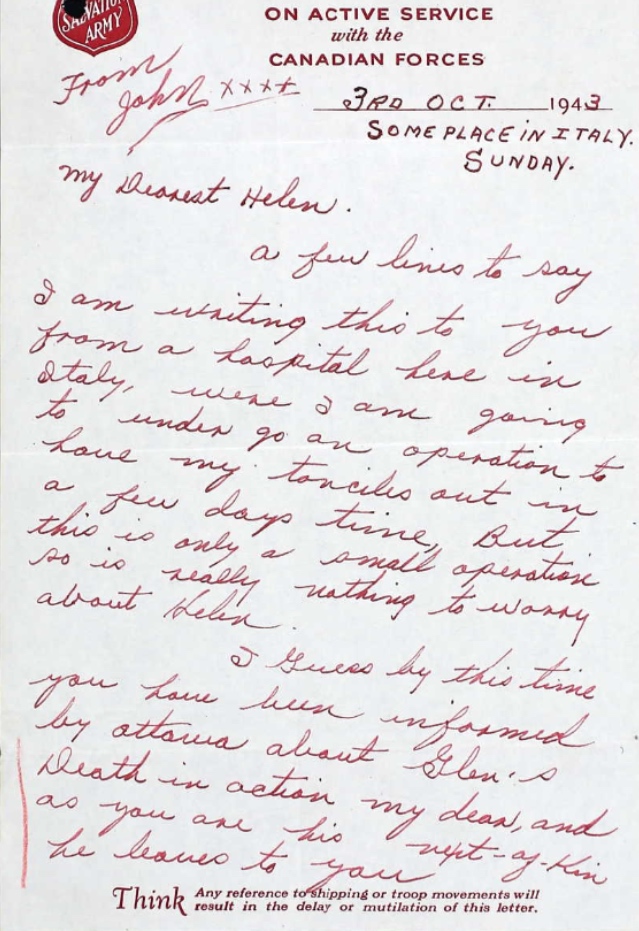 SALVATION
ARMY
ON ACTIVE SERVICE
with the
CANADIAN FORCES
From
John xxxx
3RD OCT. 1943
SOMEPLACE IN ITALY.
SUNDAY.
My Dearest Helen.
a few lines to say
I am writing this to you
from a hospital here in
Italy, were I am going
to under go an operation to
have my tonciles out in
a few days time, But
this is only a small operation
so is really nothing to worry
about Helen.
I Guess by this time
you have been informed
by ottawa about Glen's
Death in action my dear, and
as you are his next-of-Kin
he leaves to you
Think Any reference to shipping or troop movements will
result in the delay or mutilation of this letter.